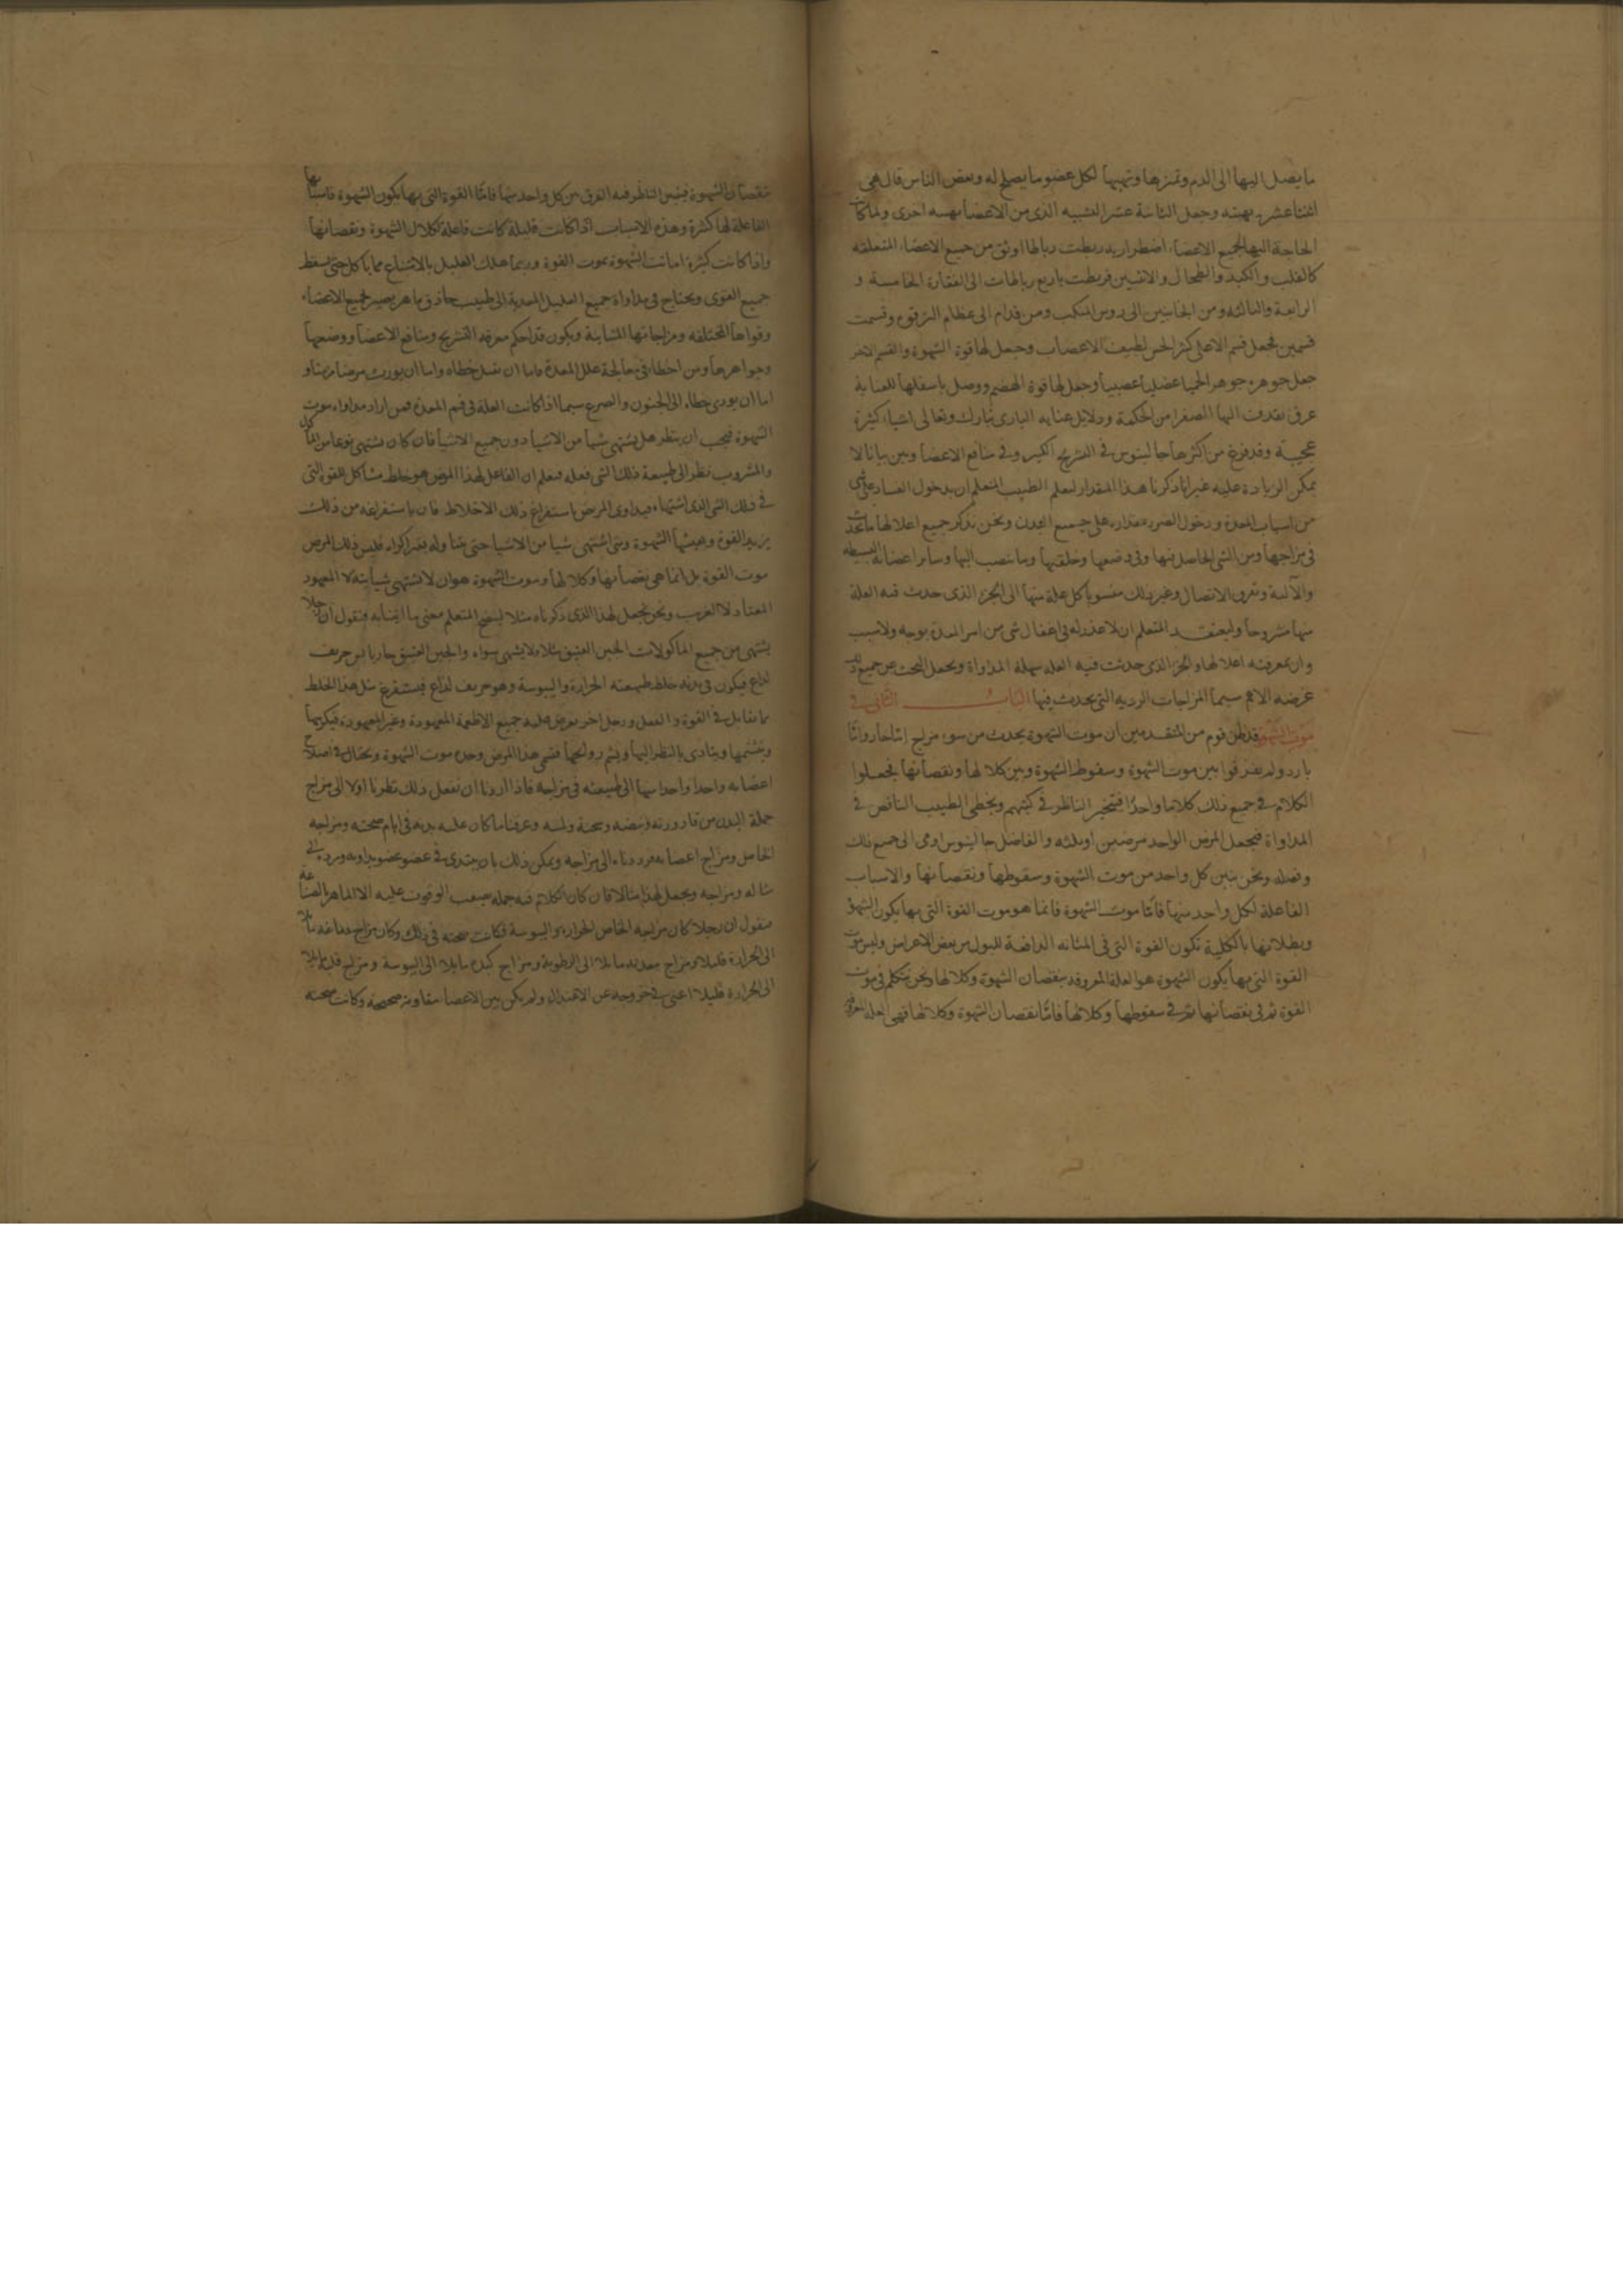 ما يصل اليها الى الدم وتميزها وتهييها لكل عضو ما يصلح له وبعض الناس قال هى
اثنتا عشر بهيئه وجعل الثانية عشر الشبيه الذى من الاعضا بهيئه اخرى ولما كان
الحاجة اليها لجميع الاعضاء اضطراريه ربطت رباطا اوثق من جميع الاعضاء المتعلقه
كالقلب والكبد والطحال والانثيين فربطت باربع رباطات الى الفقارة الخامسة و
الرابعة والثالثه ومن الجانبين الى روس المنكب ومن قدام الى عظام الترقوه وقسمت
قسمين فجعل قسم الاعلى كثر الحس لطيف الاعصاب وجعل لها قوة الشهوة والقسم الاخر
جعل جوهره جوهر الحميا عضليا عصبيا وجعل لها قوة الهضم ووصل باسفلها للعناية
عرق تقذف اليها الصفرا من الحكمة ودلايل عنايه البارى تبارك وتعالى اشياء كثيرة
عجيبة وقد فرغ من اكثرها جالينوس فى التشريح الكبير وفى منافع الاعضا وبين بيانا لا
يمكن الزيادة عليه غير انا ذكرنا هذا المقدار ليعلم الطبيب المتعلم ان بدخول الفساد على شى
من اسباب المعدة ودخول الضرر مقداره على جميع البدن ونحن نذكر جميع اعلالها ما يحدث
فى مزاجها ومن الشى الحاصل فيها وفى وضعها وخلقتها وما ينصب اليها وساير اعضائه البسيطه
والآلية وتفرق الاتصال وغير ذلك منسوبا كل علة منها الى الجزء الذى حدث فيه العلة
منها مشروحا وليعتقد المتعلم ان لا عذر له فى اغفال شى من امر المعدة بوجه ولا سبب
وان بمعرفته اعلالها والجزء الذى حدثت فيه العله سهلة المداواة ويجعل البحث عن جميع ذلك
غرضه الاهم سيما المزاجات الرديه التى يحدث فيها الباب الثانى فى
موت الشهوة قد ظن قوم من المتقدمين ان موت الشهوة يحدث من سوء مزاج اما حار واما
بارد ولم يفرقوا بين موت الشهوة وسقوط الشهوة وبين كلالها ونقصانها فجعلوا
الكلام فى جميع ذلك كلاما واحدا فيتحير الناظر فى كتبهم ويخطى الطبيب الناقص فى
المداواة فيجعل المرض الواحد مرضين او ثلثه والفاضل جالينوس اومى الى جميع ذلك
وفصله ونحن نبين كل واحد من موت الشهوة وسقوطها ونقصانها والاسباب
الفاعلة لكل واحد منها فاما موت الشهوة فانما هو موت القوة التى بها يكون الشهوة
وبطلانها بالكلية تكون القوة التى فى المثانه الدافعة للبول من بعض الاعراض وليس موت
القوة التى بها يكون الشهوة هو العلة المعروفه بنقصان الشهوة وكلالها ونحن نتكلم فى موت
القوة ثم فى نقصانها ثم فى سقوطها وكلالها فاما نقصان الشهوة وكلالها فهى العله المعروفه
بنقصان الشهوة فيتبين الناظر فيه الفرق بين كل واحد منها فاما القوة التى بها يكون الشهوة فاسبابها
الفاعلة لها كثيرة وهذه الاسباب اذا كانت قليلة كانت فاعلة لكلال الشهوة ونقصانها
واذا كانت كثيرة اماتت الشهوة بموت القوة وربما هلك العليل بالامتناع مما ياكل حتى يسقط
جميع القوى ويحتاج فى مداواة جميع العليل المعدية الى طبيب حاذق ماهر بصير بجميع الاعضاء
وقواها المختلفه ومزاجاتها المتباينة ويكون قد احكم معرفة التشريح ومنافع الاعضا ووضعها
وجواهرها ومن اخطاء فى معالجة علل المعدة فاما ان يقتل خطاه واما ان يورث مرضا مزمنا و
اما ان يودى خطاه الى الجنون والصرع سيما اذا كانت العلة فى فم المعدة فمن اراد مداواه موت
الشهوة فيجب ان ينظر هل يشتهى شيا من الاشيا دون جميع الاشيا فان كان يشتهى نوعا من الماكول
والمشروب نظر الى طبيعة ذلك الشى فعله فيعلم ان الفاعل لهذا المرض هو خلط مشاكل للقوة التى
فى ذلك الشى الذى اشتهاه فيداوى المريض باستفراغ ذلك الاخلاط فان باستفراغه من ذلك
يزيد القوة ويعيشها الشهوة ومتى اشتهى شيا من الاشيا حتى يتناوله بغير اكراه فليس ذلك المرض
موت القوة بل انما هى نقصانها وكلالها وموت الشهوة هو ان لا يشتهى شيا بته لا المعهود
المعتاد لا الغريب ونحن نجعل لهذا الذى ذكرناه مثلا ليصح للمتعلم معنى ما اتينا به فنقول ان رجلا
يشتهى من جميع الماكولات الجبن العتيق مثلا ولا يشتهى سواه والجبن العتيق حار يابس حريف
لداع فيكون فى بدنه خلط طبيعته الحرارة واليبوسة وهو حريف لداع فيستفرغ مثل هذا الخلط
بما يقابل فى القوة والفعل ورجل اخر يعرض عليه جميع الاطعمة المعهودة وغير المعهودة فيكرهها
ويتشتمها ويتاذى بالنظر اليها ويشم روايحها فسمى هذا المرض وحده موت الشهوة ويحتال فى اصلاح
اعضايه واحدا واحدا منها الى طبيعته فى مزاجه فاذا اردنا ان نفعل ذلك نظرنا اولا الى مزاج
جملة البدن من قارورته ونبضه وسحنة ولمسه وعرفنا ما كان عليه بدنه فى ايام صحته ومزاجه
الخاص ومزاج اعضايه فرددناه الى مزاجه ويمكن ذلك بان يبتدى فى عضو عضو يداويه ويرده الى
مثاله ومزاجه ونجعل لهذا مثالا فان كان الكلام فيه جمله صعب الوقوف عليه الا الماهر بالصناعة
فنقول ان رجلا كان مزاجه الخاص الحرارة واليبوسة فكانت صحته فى ذلك وكان مزاج دماغه مايلا
الى الحرارة قليلا ومزاج معدته مايلا الى الرطوبة ومزاج كبده مايلا الى اليبوسة ومزاج قلبه مايلا
الى الحرارة قليلا اعنى فى خروجه عن الاعتدال ولم يكن بين الاعضا مقاومة صحيحة وكانت صحته